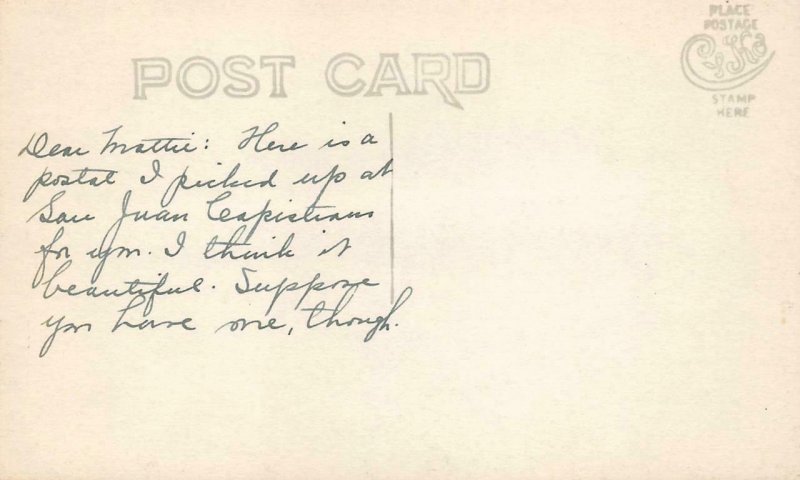 PLACE
POSTAGE
STAMP
HERE
POST CARD
Dear Mattie: Here is a
postal I picked up at
San Juan Capistrano
for you. I think it
beautiful. Suppose
you have one, though.